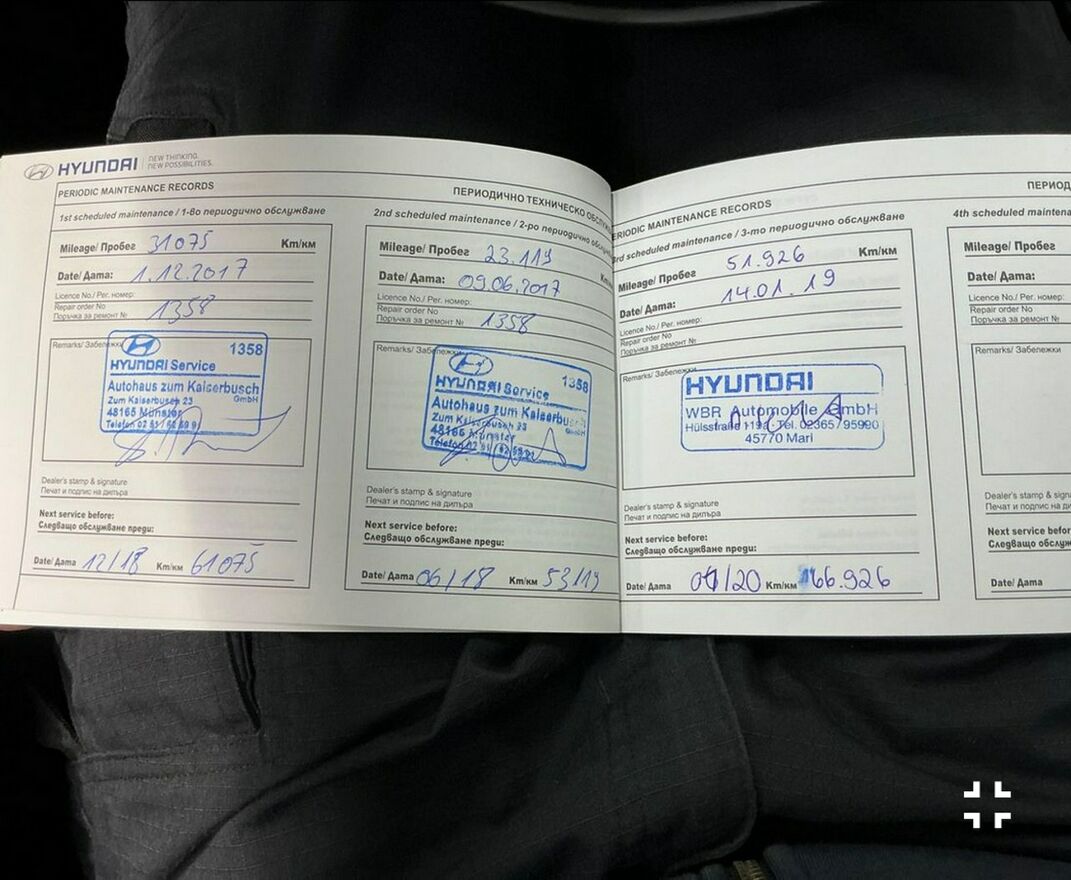 HYUNDAI NEW THINKING. NEW POSSIBILITIES.
PERIODIC MAINTENANCE RECORDS
ПЕРИОДИЧНО ТЕХНИЧЕСКО
1st scheduled maintenance / 1-во периодично обслужване
Mileage/ Пробег 31075 Km/км
Date/ Дата: 1.12.2017
Licence No./ Рег. номер:
Repair order No
Поръчка за ремонт № 1358
Remarks/ Забележки
HYUNDAI Service 1358
Autohaus zum Kaiserbusch
GmbH
Zum Kaiserbusch 23
48165 Münster
Telefon 02 51/
Dealer's stamp & signature
Печат и подпис на дилъра
Next service before:
Следващо обслужване преди:
Date/ Дата 12/18 Km/км 61075
2nd scheduled maintenance / 2-ро периодично
Mileage/ Пробег 23.119
Date/ Дата: 09.06.2017
Licence No./ Рег. номер:
Repair order No
Поръчка за ремонт № 1358
Remarks/ Забележки
HYUNDAI Service 1358
Autohaus zum Kaiserbusch
GmbH
Zum Kaiserbusch 23
48165 Münster
Telefon 02 51/
Dealer's stamp & signature
Печат и подпис на дилъра
Next service before:
Следващо обслужване преди:
Date/ Дата 06/18 Km/км 53119
PERIODIC MAINTENANCE RECORDS
3rd scheduled maintenance / 3-то периодично обслужване
Mileage/ Пробег 51.926 Km/км
Date/ Дата: 14.01.19
Licence No./ Рег. номер:
Repair order No
Поръчка за ремонт №
Remarks/ Забележки
HYUNDAI
WBR Automobile GmbH
Hülsstraße Tel. 02365/95990
45770 Marl
Dealer's stamp & signature
Печат и подпис на дилъра
Next service before:
Следващо обслужване преди:
Date/ Дата 01/20 Km/км 66.926
4th scheduled
Mileage/ Пробег
Date/ Дата:
Licence No./ Рег. номер:
Repair order No
Поръчка за ремонт №
Remarks/ Забележки
Dealer's stamp &
Печат и подпис на
Next service
Следващо
Date/ Дата